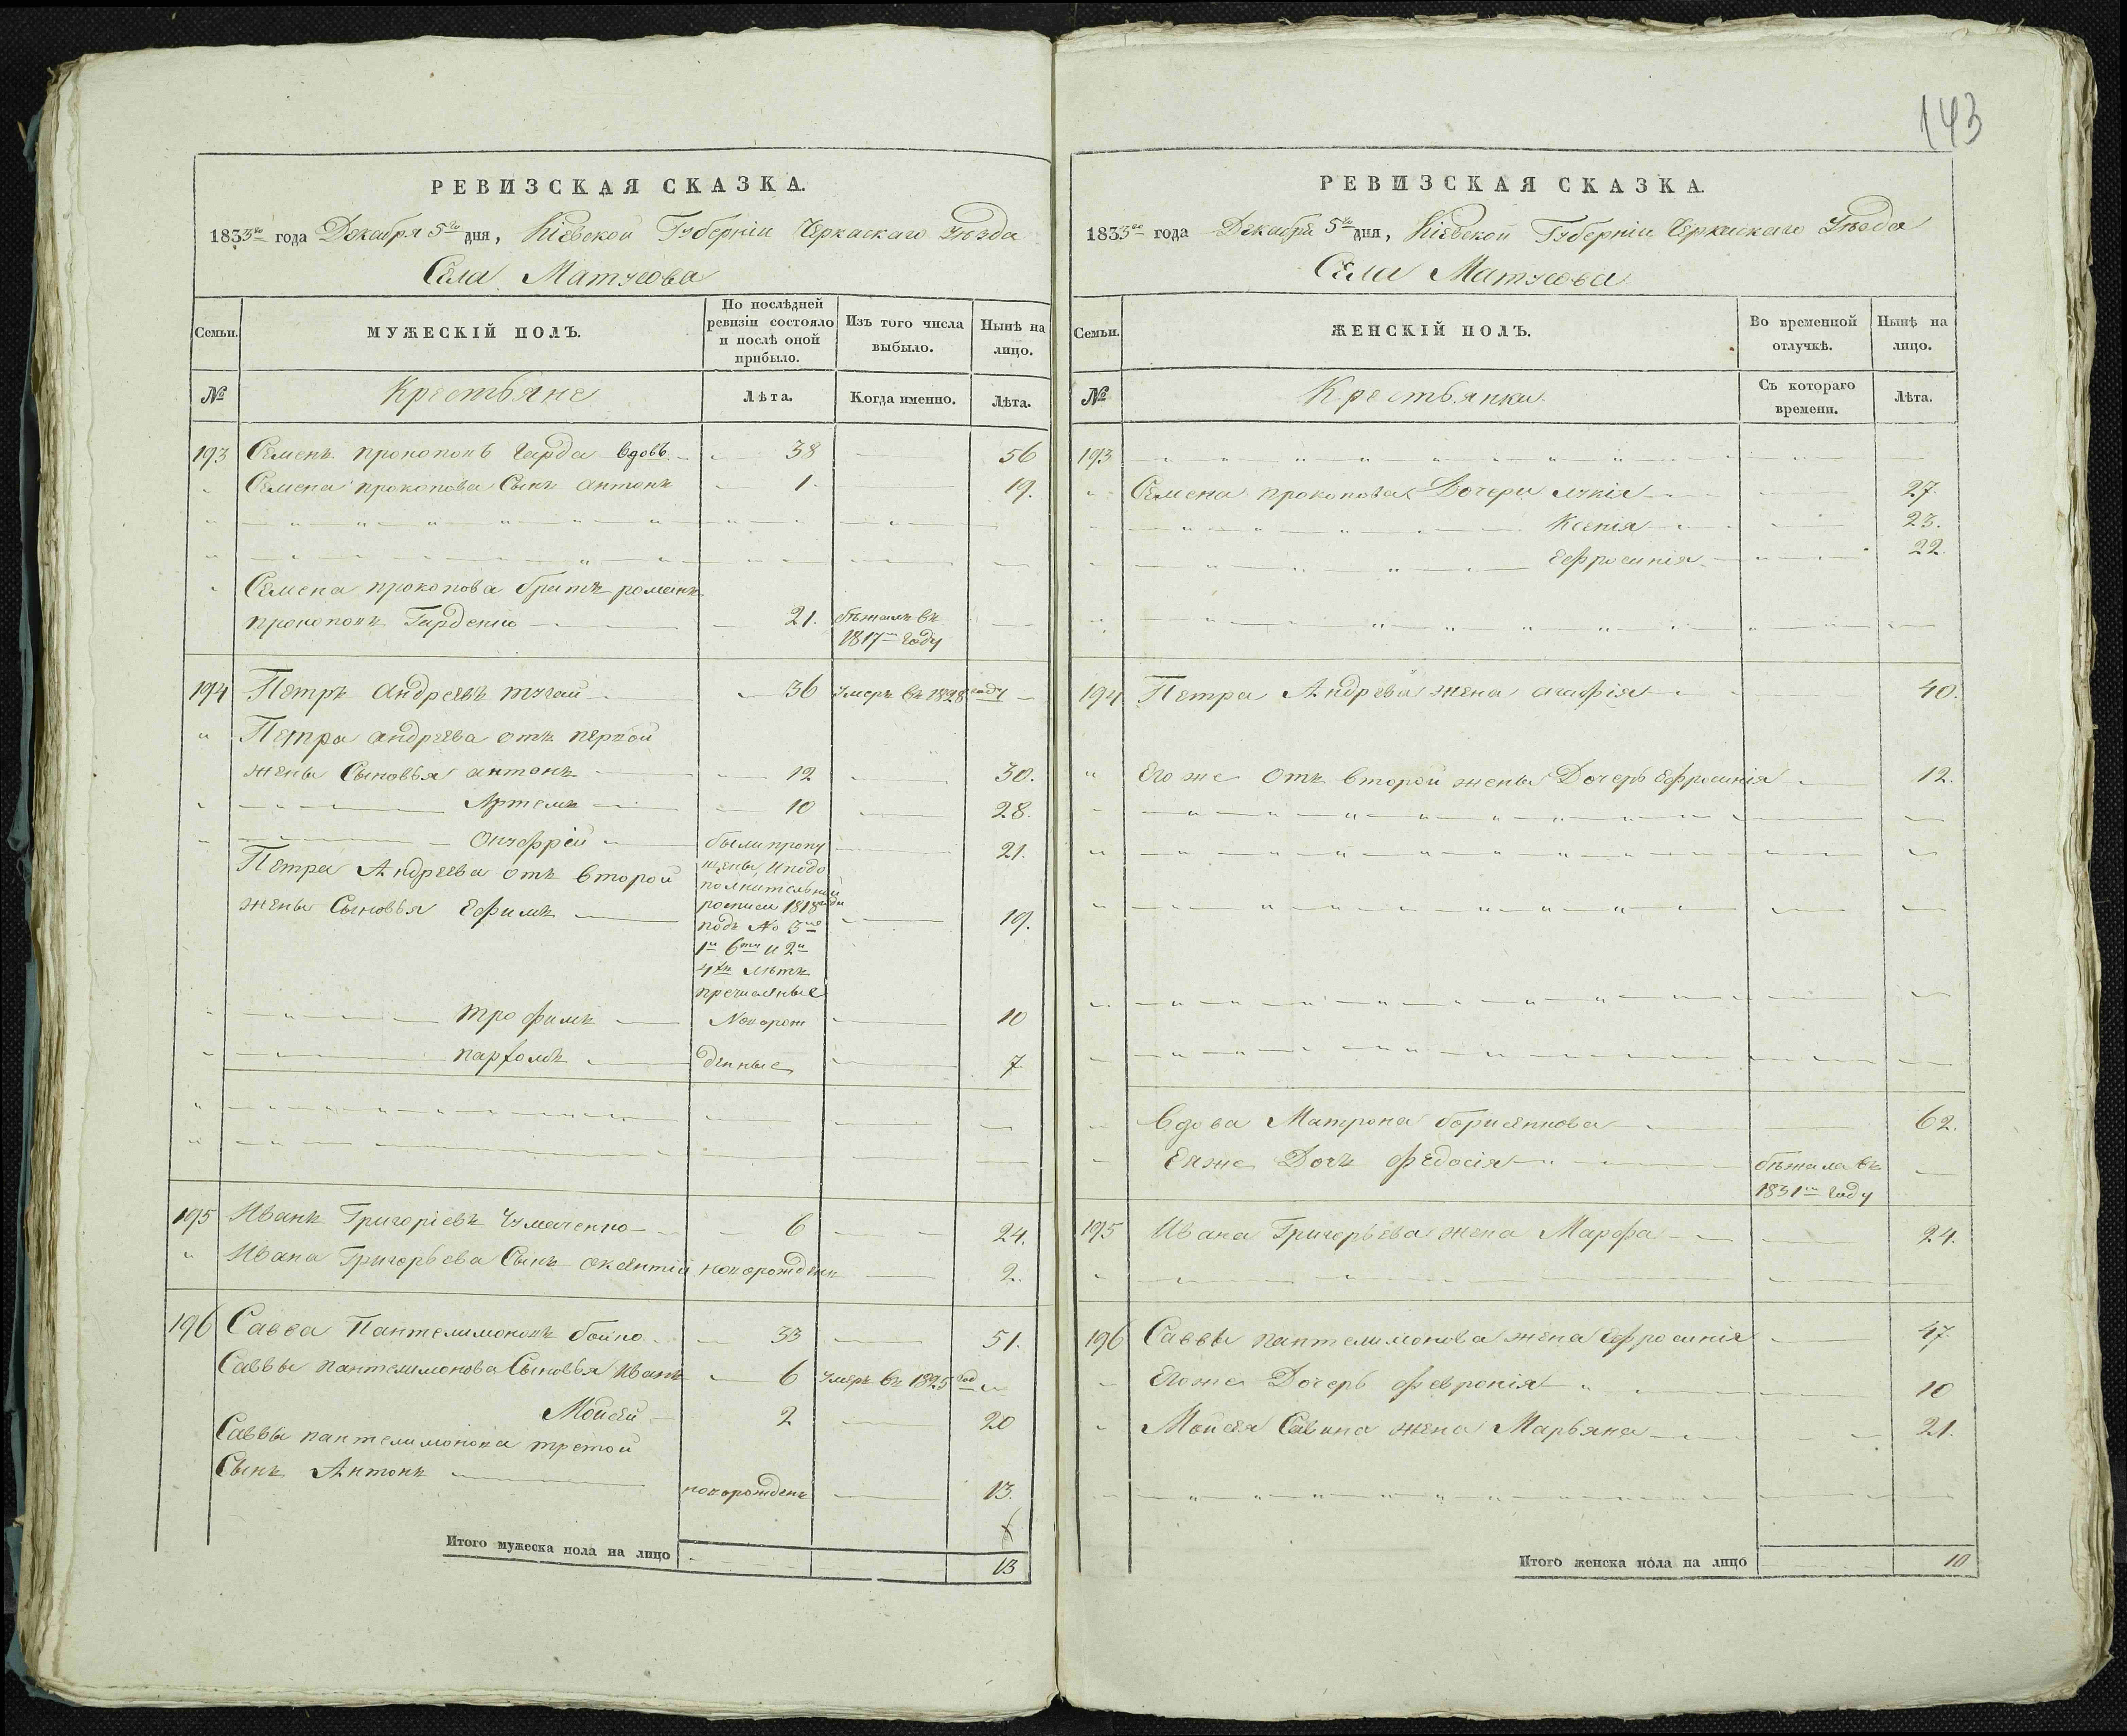 143
РЕВИЗСКАЯ СКАЗКА.
1833го года Декабря 5го дня, Кіевской Губерніи Черкаскаго Уѣзда
Села Матусова
Семьи.
МУЖЕСКІЙ ПОЛЪ.
По послѣдней ревизіи состояло и послѣ оной прибыло.
Изъ того числа выбыло.
Нынѣ на лицо.
№
Крестьяне
Лѣта.
Когда именно.
Лѣта.
193 Семенъ прокоповъ гарда вдовъ 38 56
Семена прокопова Сынъ антонъ 1. 19.
Семена прокопова братъ романъ
прокоповъ 21. бѣжалъ въ
1817м году
194 Петръ андреевъ тугай 36 умеръ въ 1828 году
Петра андреева отъ первой
жены Сыновья антонъ 12 30.
Артемъ 10 28.
Онуфрій были пропу 21.
Петра Андреева отъ второй
щены, и подо
полнительной
жены Сыновья Ефимъ росписи 1818 19.
подъ №
1й 6ти и 2й
4хъ лѣтъ
причисленные
трофимъ Новорож 10
парfомъ денные 7
195 Иванъ Григоріевъ Чумаченко 6 24.
Ивана Григорьева Сынъ новорожденъ 2.
196 Савва Пантелимоновъ бойко 33 51.
Саввы пантелимонова Сыновья Иванъ 6 умеръ въ 1825 год
Мойсей 2 20
Саввы пантелимонова третой
Сынъ Антонъ
новорожденъ 13.
Итого мужеска пола на лицо 13
РЕВИЗСКАЯ СКАЗКА.
1833го года Декабря 5го дня, Кіевской Губерніи Черкаскаго Уѣзда
Села Матусова
Семьи.
ЖЕНСКІЙ ПОЛЪ.
Во временной отлучкѣ.
Нынѣ на лицо.
№
Крестьянки
Съ котораго времени.
Лѣта.
193
Семена прокопова Дочери лукія 27.
Ксенія 23.
Ефросинія 22.
194 Петра Андрева жена агафія 40.
Его же отъ второй жены Дочерь Ефросинія 12.
Вдова Матрона 62.
Еяже Дочъ федосія бѣжала въ
1831м году
195 Ивана Григорьева жена Марфа 24.
196 Саввы пантелимонова жена Ефросинія 47.
Егоже Дочерь февронія 10
Мойсея Савина жена Марьяна 21.
Итого женска пола на лицо 10